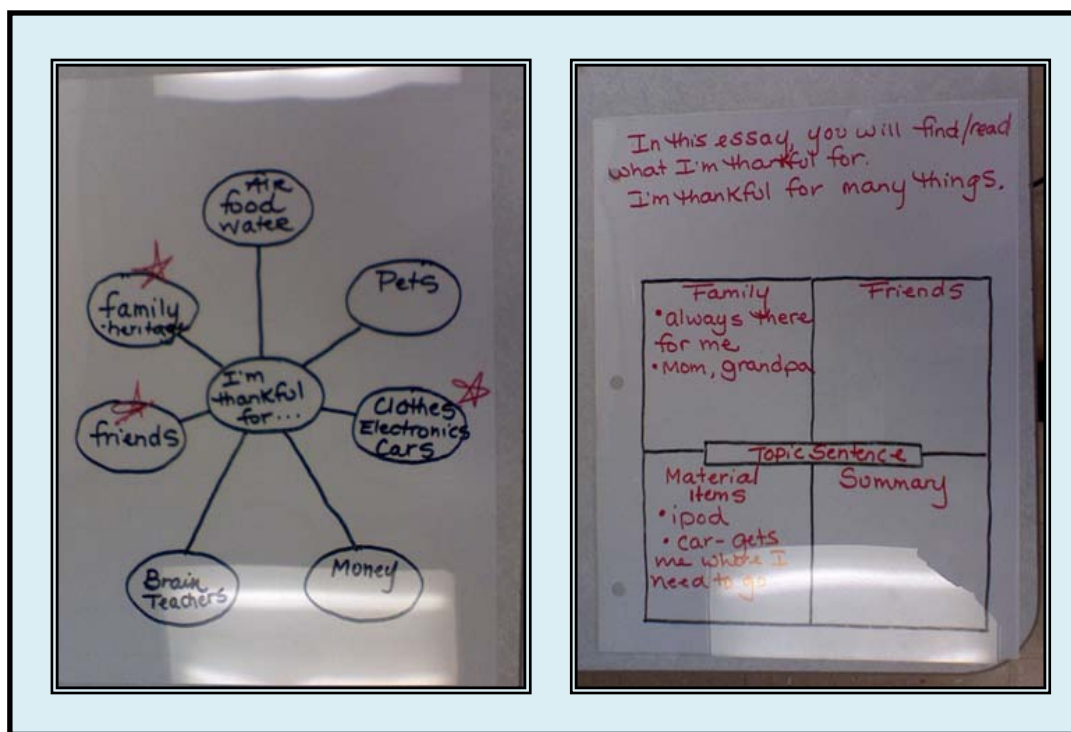 Air
food
water
Pets
family
·heritage
I'm
thankful
for...
Clothes
Electronics
Cars
friends
Brain
Teachers
Money
In this essay, you will find/read
what I'm thankful for.
I'm thankful for many things.
Family
• always there
for me
• Mom, grandpa
Friends
Topic Sentence
Material
Items
• ipod
• car- gets
me where I
need to go
Summary